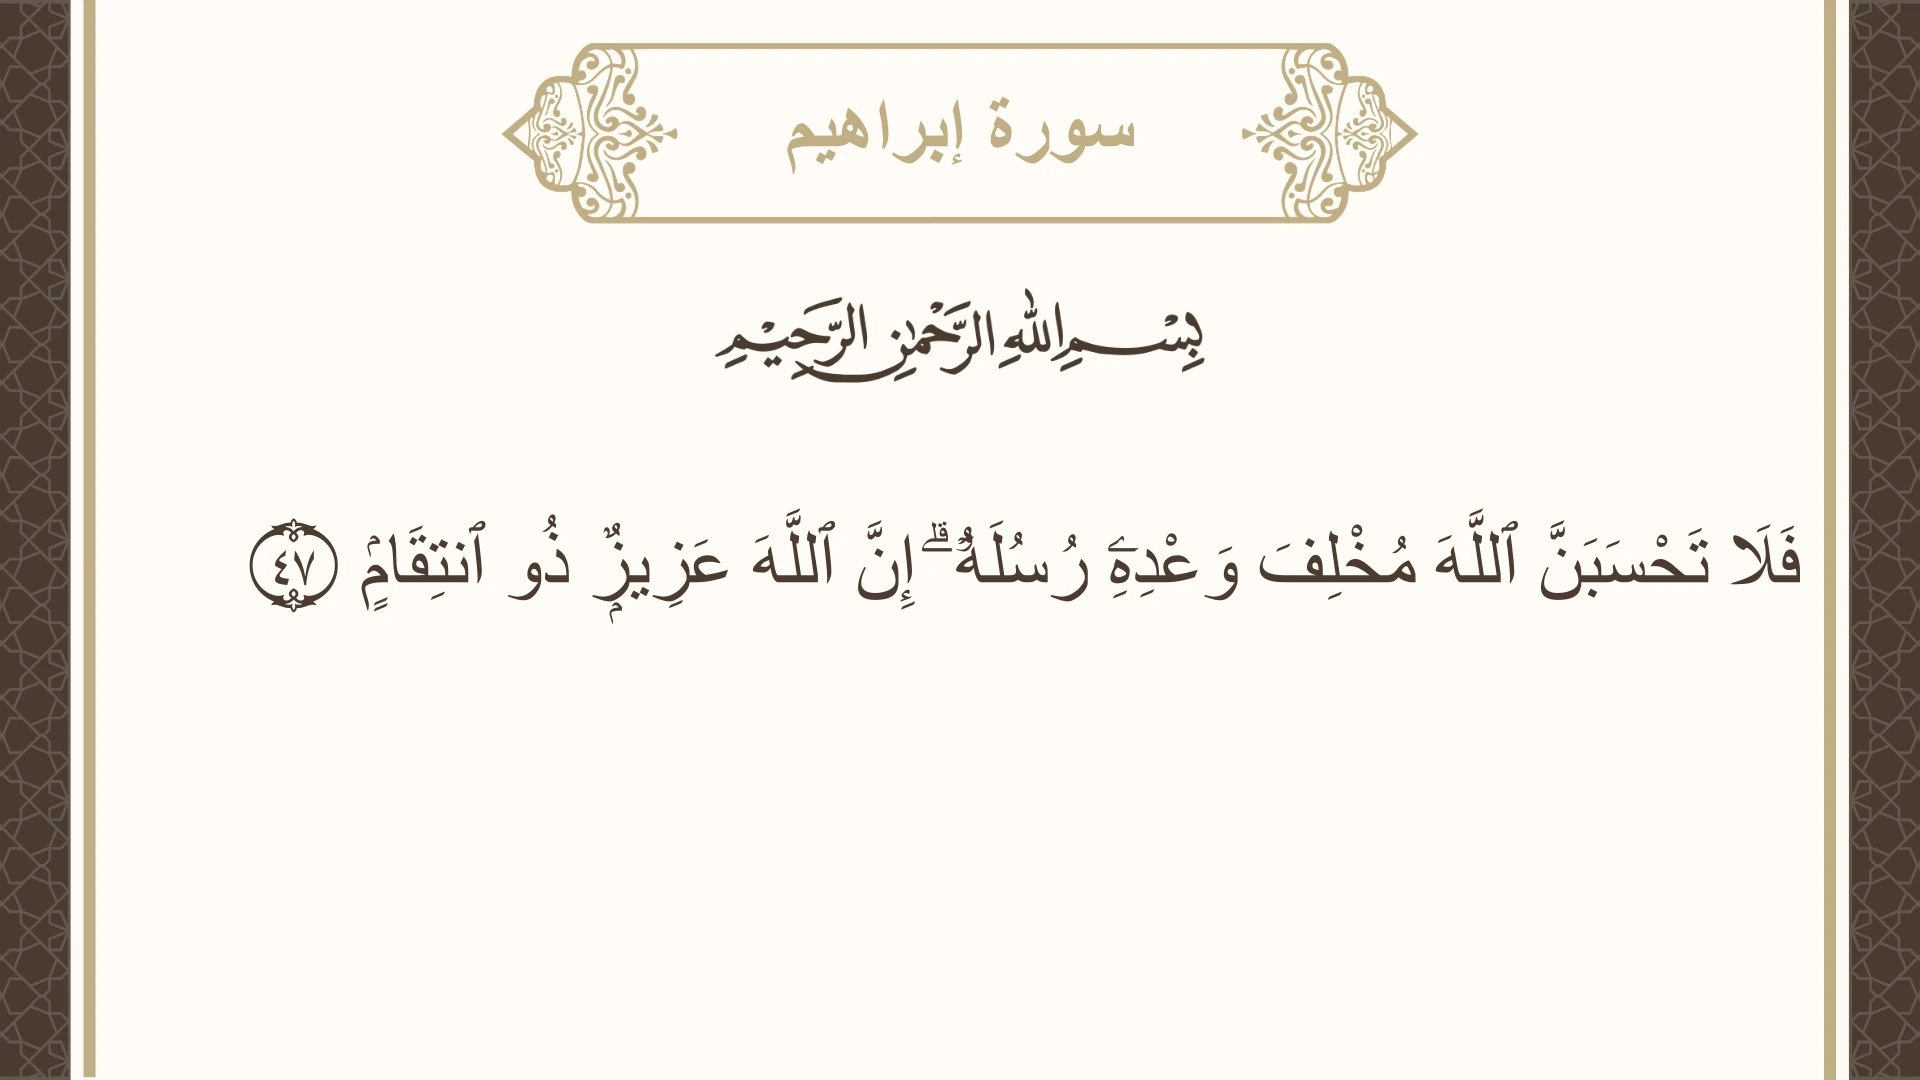 سورة إبراهيم
بِسْمِ اللهِ الرَّحْمٰنِ الرَّحِيْمِ
فَلَا تَحْسَبَنَّ ٱللَّهَ مُخْلِفَ وَعْدِهِۦ رُسُلَهُۥٓ ۗ إِنَّ ٱللَّهَ عَزِيزٌۭ ذُو ٱنتِقَامٍۢ ٤٧